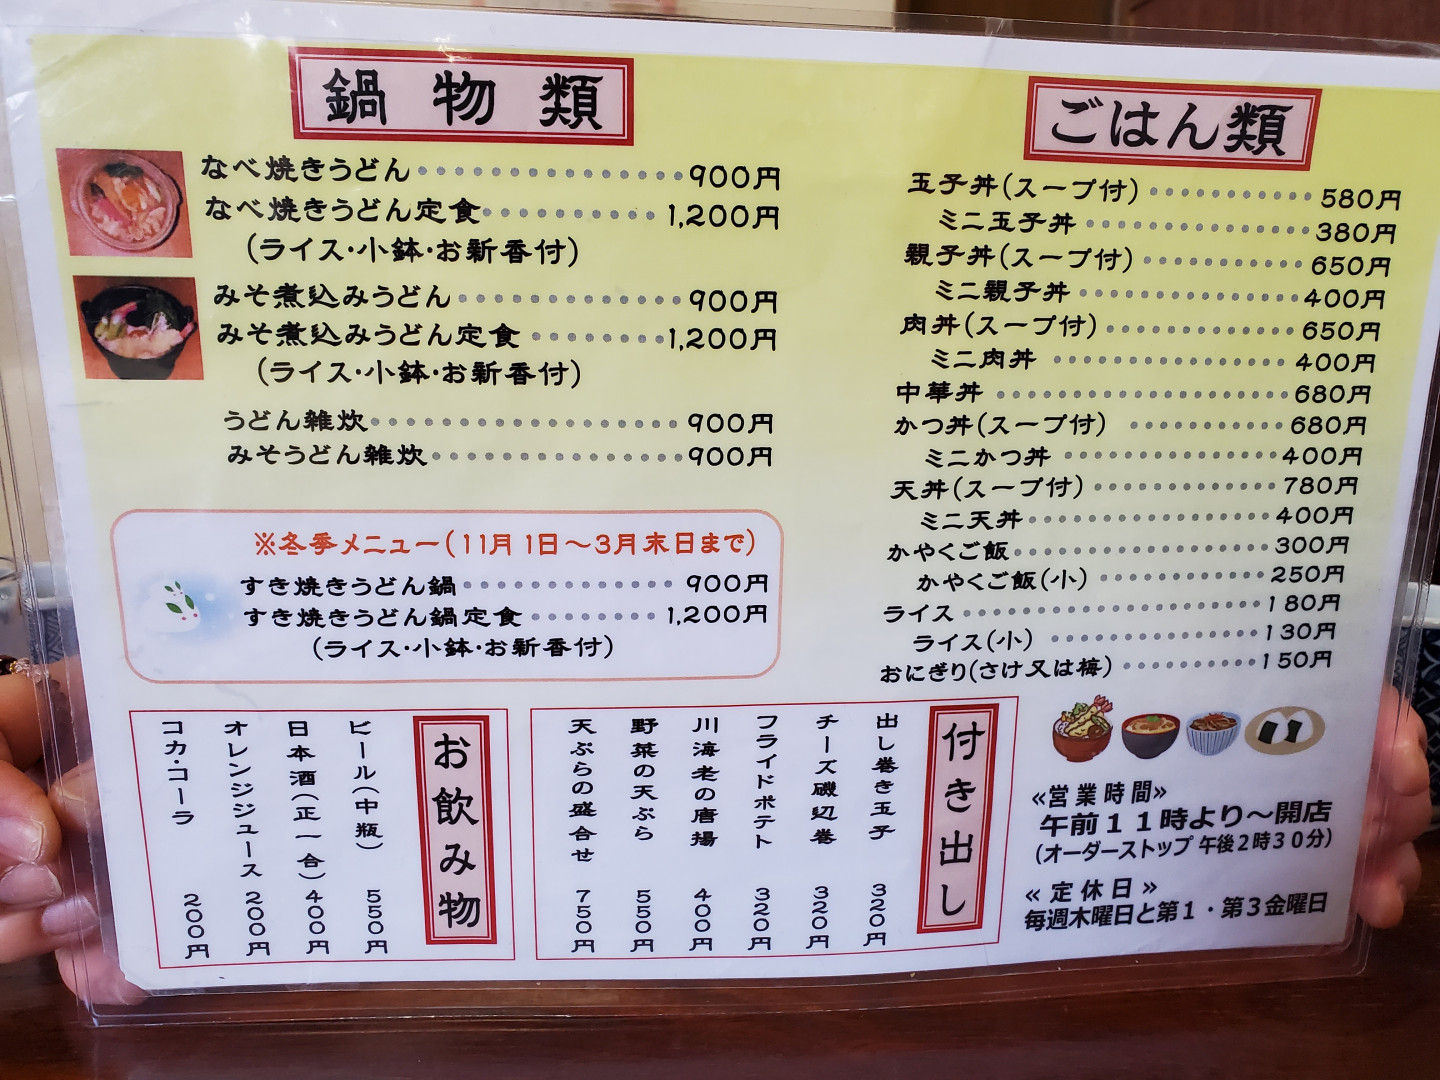 鍋物類
なべ焼きうどん 900円
なべ焼きうどん定食 1,200円
(ライス・小鉢・お新香付)
みそ煮込みうどん 900円
みそ煮込みうどん定食 1,200円
(ライス・小鉢・お新香付)
うどん雑炊 900円
みそうどん雑炊 900円
※冬季メニュー(11月1日～3月末日まで)
すき焼きうどん鍋 900円
すき焼きうどん鍋定食 1,200円
(ライス・小鉢・お新香付)
ごはん類
玉子丼(スープ付) 580円
ミニ玉子丼 380円
親子丼(スープ付) 650円
ミニ親子丼 400円
肉丼(スープ付) 650円
ミニ肉丼 400円
中華丼 680円
かつ丼(スープ付) 680円
ミニかつ丼 400円
天丼(スープ付) 780円
ミニ天丼 400円
かやくご飯 300円
かやくご飯(小) 250円
ライス 180円
ライス(小) 130円
おにぎり(さけ又は梅) 150円
付き出し
出し巻き玉子 320円
チーズ磯辺巻 320円
フライドポテト 320円
川海老の唐揚 400円
野菜の天ぷら 550円
天ぷらの盛合せ 750円
お飲み物
ビール(中瓶) 550円
日本酒(正一合) 400円
オレンジジュース 200円
コカ・コーラ 200円
≪営業時間≫
午前11時より～開店
(オーダーストップ 午後2時30分)
≪定休日≫
毎週木曜日と第1・第3金曜日